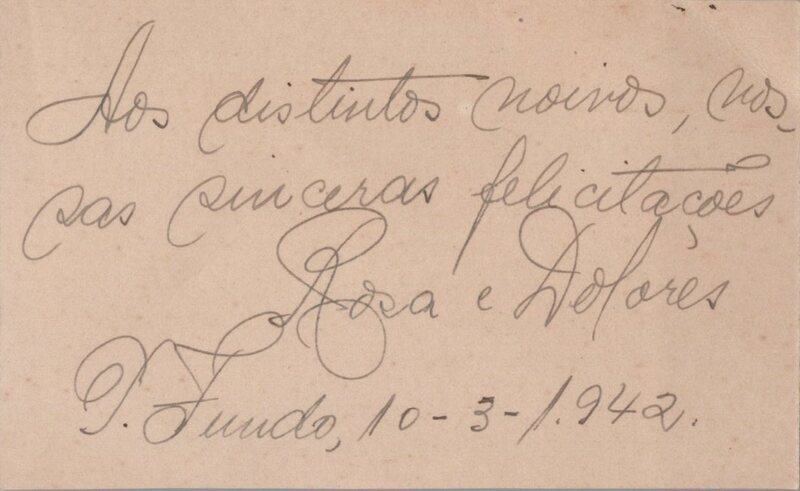 Aos distintos noivos, nos-
sas sinceras felicitações
Rosa e Dolôres
P. Fundo, 10-3-1.942.